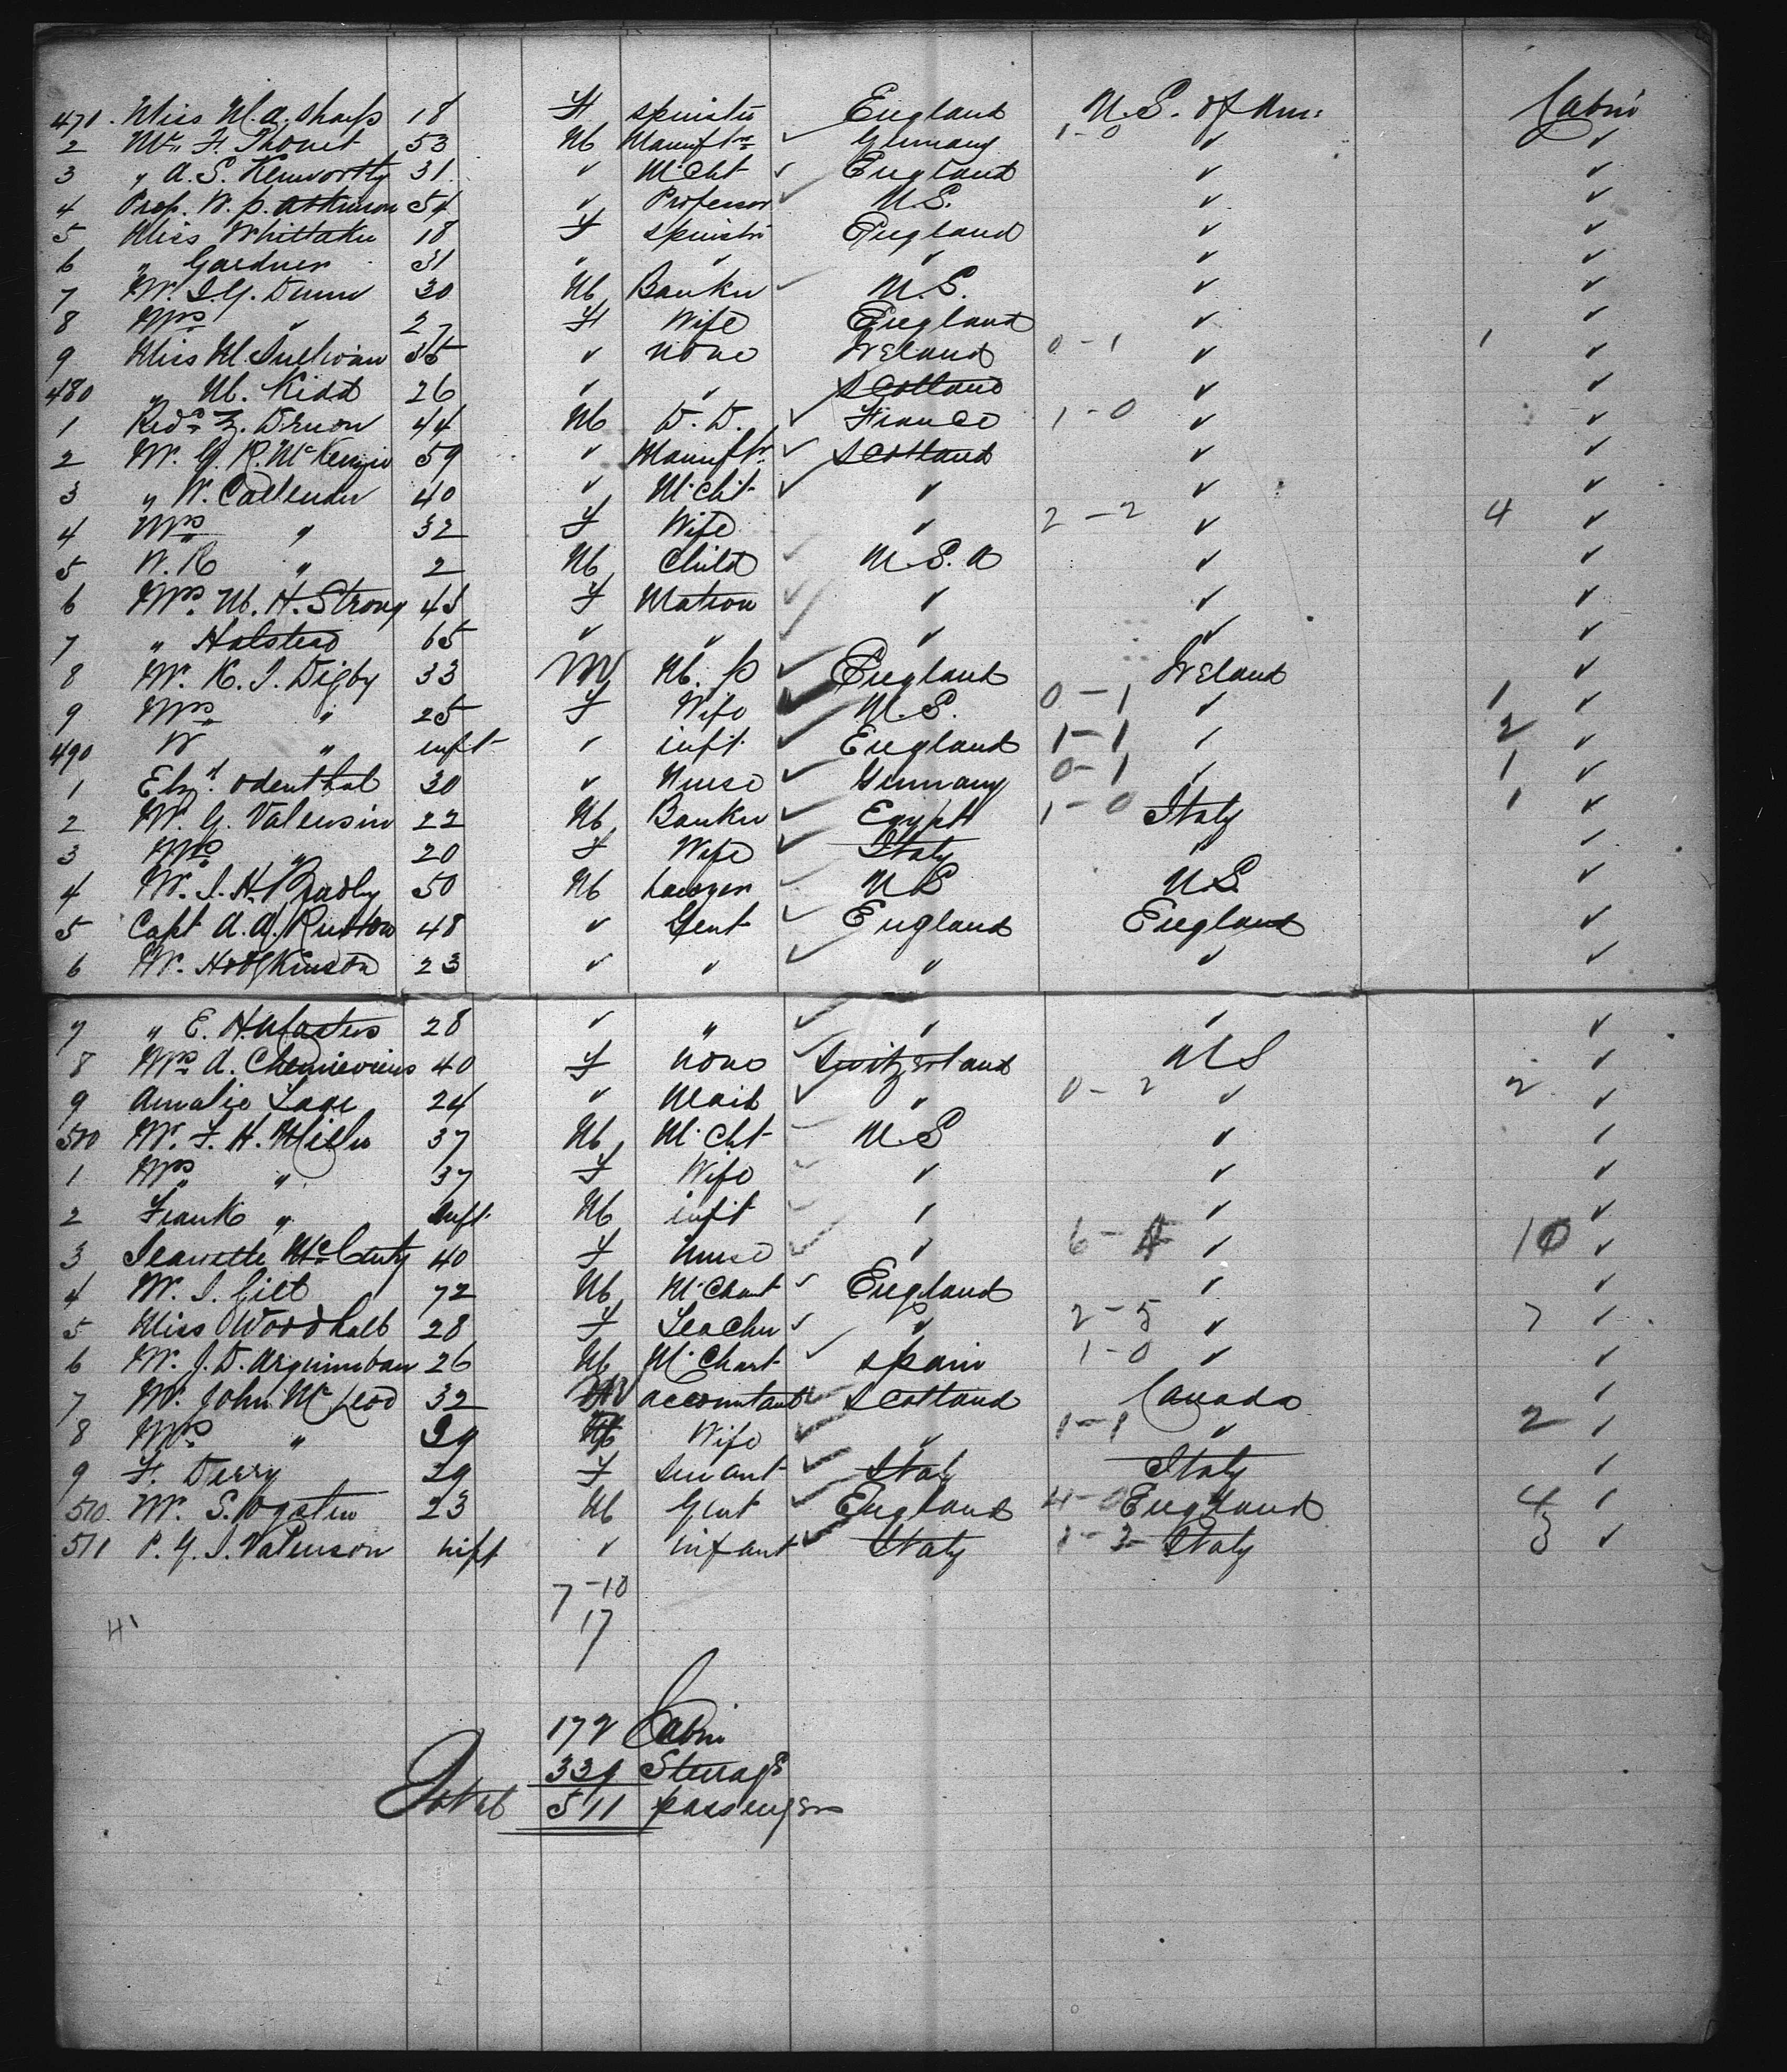 471. Miss M. A. Sharp 18 F Spinster England U.S. of Am: Cabin
2 Mr. F. Thonet 53 M Manuftr. ✓ Germany 1-0 ✓ ✓
3 " A. S. Kenworthy 31 ✓ M'Cht ✓ England ✓ ✓
4 Prof. W. P. Atkinson 54 ✓ Professor ✓ U.S. ✓ ✓
5 Miss Whittaker 18 F Spinstr England ✓ ✓
6 " Gardner 31 " " " ✓ ✓
7 Mr. J. G. Dunn 30 M Banker ✓ U.S. ✓ ✓
8 Mrs " 27 F Wife England ✓ ✓
9 Miss M Sullivan 35 ✓ none Ireland 0-1 ✓ 1 ✓
480 " M. Kidd 26 ✓ " Scotland ✓ ✓
1 Revd. 44 M D. D. ✓ France 1-0 ✓ ✓
2 Mr. G. R. McKenzie 59 ✓ Manuftr. ✓ Scotland ✓ ✓
3 " W. Callendar 40 ✓ M'Cht ✓ ✓ ✓ ✓
4 Mrs " 32 F Wife " 2-2 ✓ 4 ✓
5 W. R " 2 M Child ✓ U.S.A ✓ ✓
6 Mrs. M. H. Strong 45 F Matron ✓ ✓ ✓ ✓
7 " Halstead 65 ✓ " ✓ ✓ ✓ ✓
8 Mr. K. T. Digby 33 M M. P ✓ England Ireland ✓
9 Mrs " 25 F Wife ✓ U.S. 0-1 ✓ 1 ✓
490 W " inft ✓ inft. ✓ England 1-1 ✓ 2 ✓
1 Elizth. Odenthal 30 ✓ Nurse ✓ Germany 0-1 ✓ 1 ✓
2 Mr. G. Valensin 22 M Banker ✓ Egypt 1-0 Italy 1 ✓
3 Mrs " 20 F Wife ✓ Italy " ✓
4 Mr. J. H. Bradly 50 M Lawyer ✓ U S U.S. ✓
5 Capt A. A. Ruxton 48 ✓ Gent ✓ England England ✓
6 Mr. Hodgkinson 23 ✓ " ✓ ✓ ✓ ✓
7 " E. H. Masters 28 ✓ " ✓ ✓ ✓ ✓
8 Mrs A. 40 F none ✓ Switzerland U S ✓
9 Amalie Lage 24 ✓ Maid ✓ " 0-2 ✓ 2 ✓
500 Mr. F. H. Miller 37 M M'Cht ✓ U.S ✓ ✓
1 Mrs " 37 F Wife ✓ ✓ ✓ ✓
2 Frank " Inft. M inft ✓ ✓ ✓ ✓
3 Jeanette McCarty 40 F Nurse ✓ ✓ 6-4 ✓ 10 ✓
4 Mr. J. Gill 72 M M'Chant ✓ England ✓ ✓
5 Miss Woodhall 28 F Teacher ✓ " 2-5 ✓ 7 ✓
6 Mr. J. D. Arguimbau 26 M M'Chant ✓ Spain 1-0 ✓ ✓
7 Mr. John McLeod 32 M accountant ✓ Scotland Canada ✓
8 Mrs " 29 F Wife ✓ ✓ 1-1 ✓ 2 ✓
9 F. Derry 29 F Servant ✓ Italy Italy ✓
510. Mr. S. Ogsten 23 M Gent ✓ England 4-0 England 4 ✓
511 P. G. J. Valenson inft ✓ infant ✓ Italy 1-2 Italy 3 ✓
7-10
41 17
172 Cabin
339 Steerage
Total 511 passengers